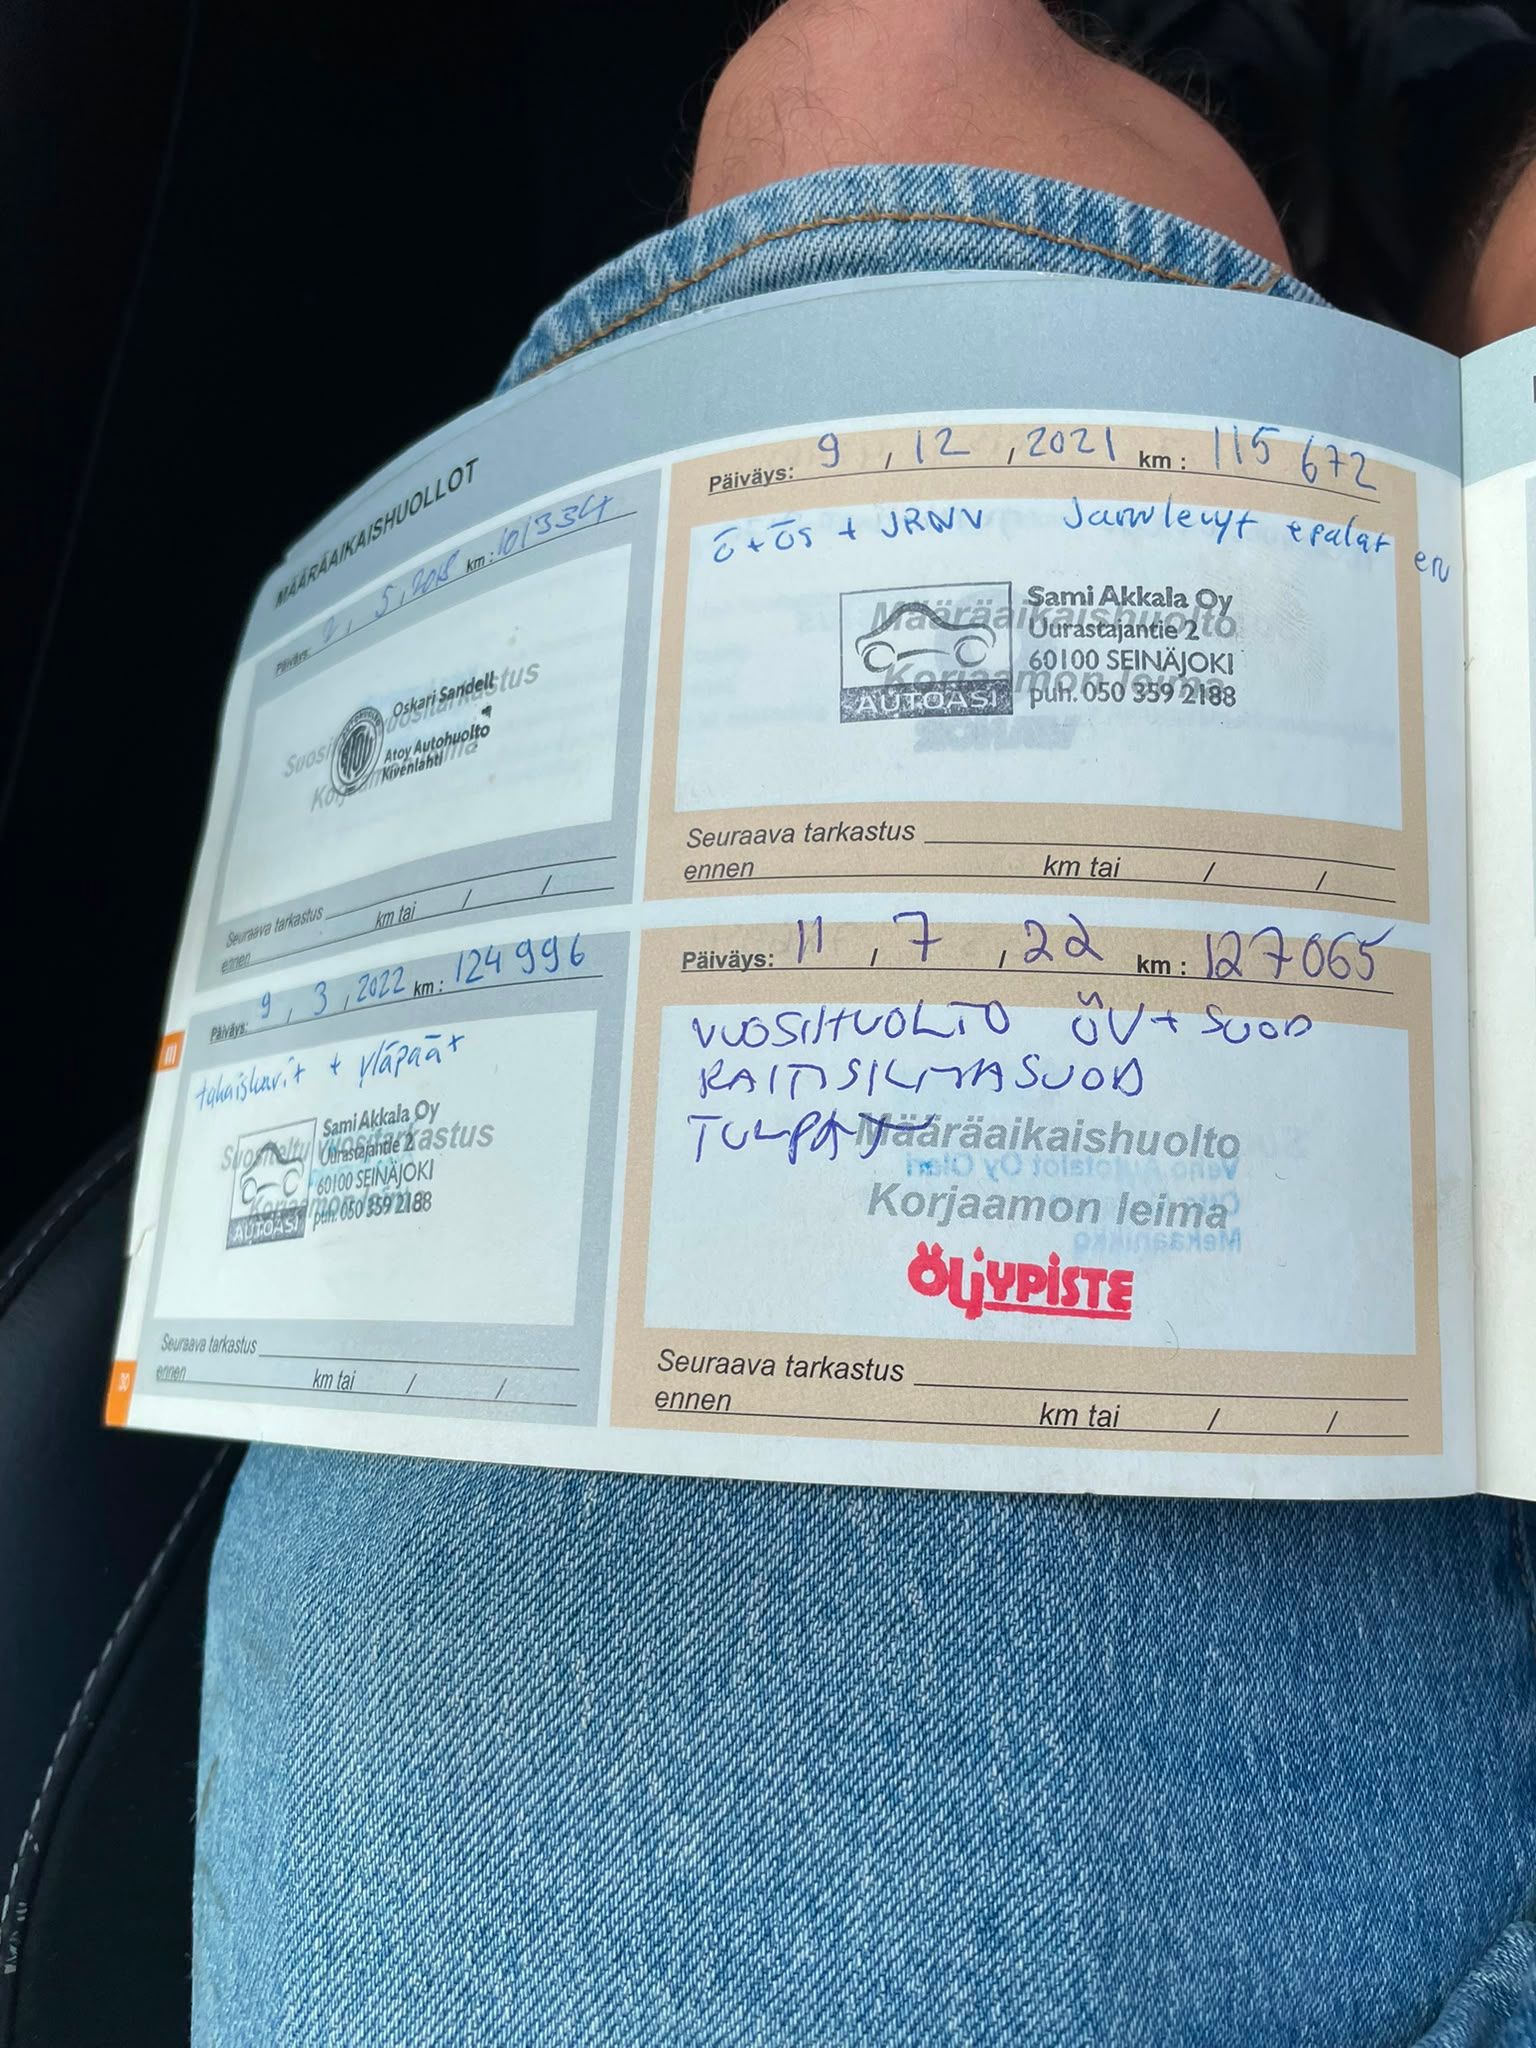 MÄÄRÄAIKAISHUOLLOT
Päiväys: 2, 5, 2018 km: 101334
Suositarkastus
Oskari Sandell
ATOY
Atoy Autohuolto
Kivenlahti
Seuraava tarkastus
ennen km tai / /
Päiväys: 9, 12, 2021 km: 115 672
ö + ös + JRNV Jarrulevyt epalat en
Määräaikaishuolto
Korjaamon leima
AUTOASI
Sami Akkala Oy
Uurastajantie 2
60100 SEINÄJOKI
puh. 050 359 2188
Seuraava tarkastus
ennen km tai / /
III
Päiväys: 9, 3, 2022 km: 124 996
takaiskarit + yläpäät
Suositeltu vuositarkastus
Korjaamon leima
AUTOASI
Sami Akkala Oy
Uurastajantie 2
60100 SEINÄJOKI
puh. 050 359 2188
Seuraava tarkastus
ennen km tai / /
30
Päiväys: 11, 7, 22 km: 127065
VUOSIHUOLTO ÖV + SUOD
RAITISILMASUOD
TULPAT
Määräaikaishuolto
Korjaamon leima
ÖLJYPISTE
Seuraava tarkastus
ennen km tai / /